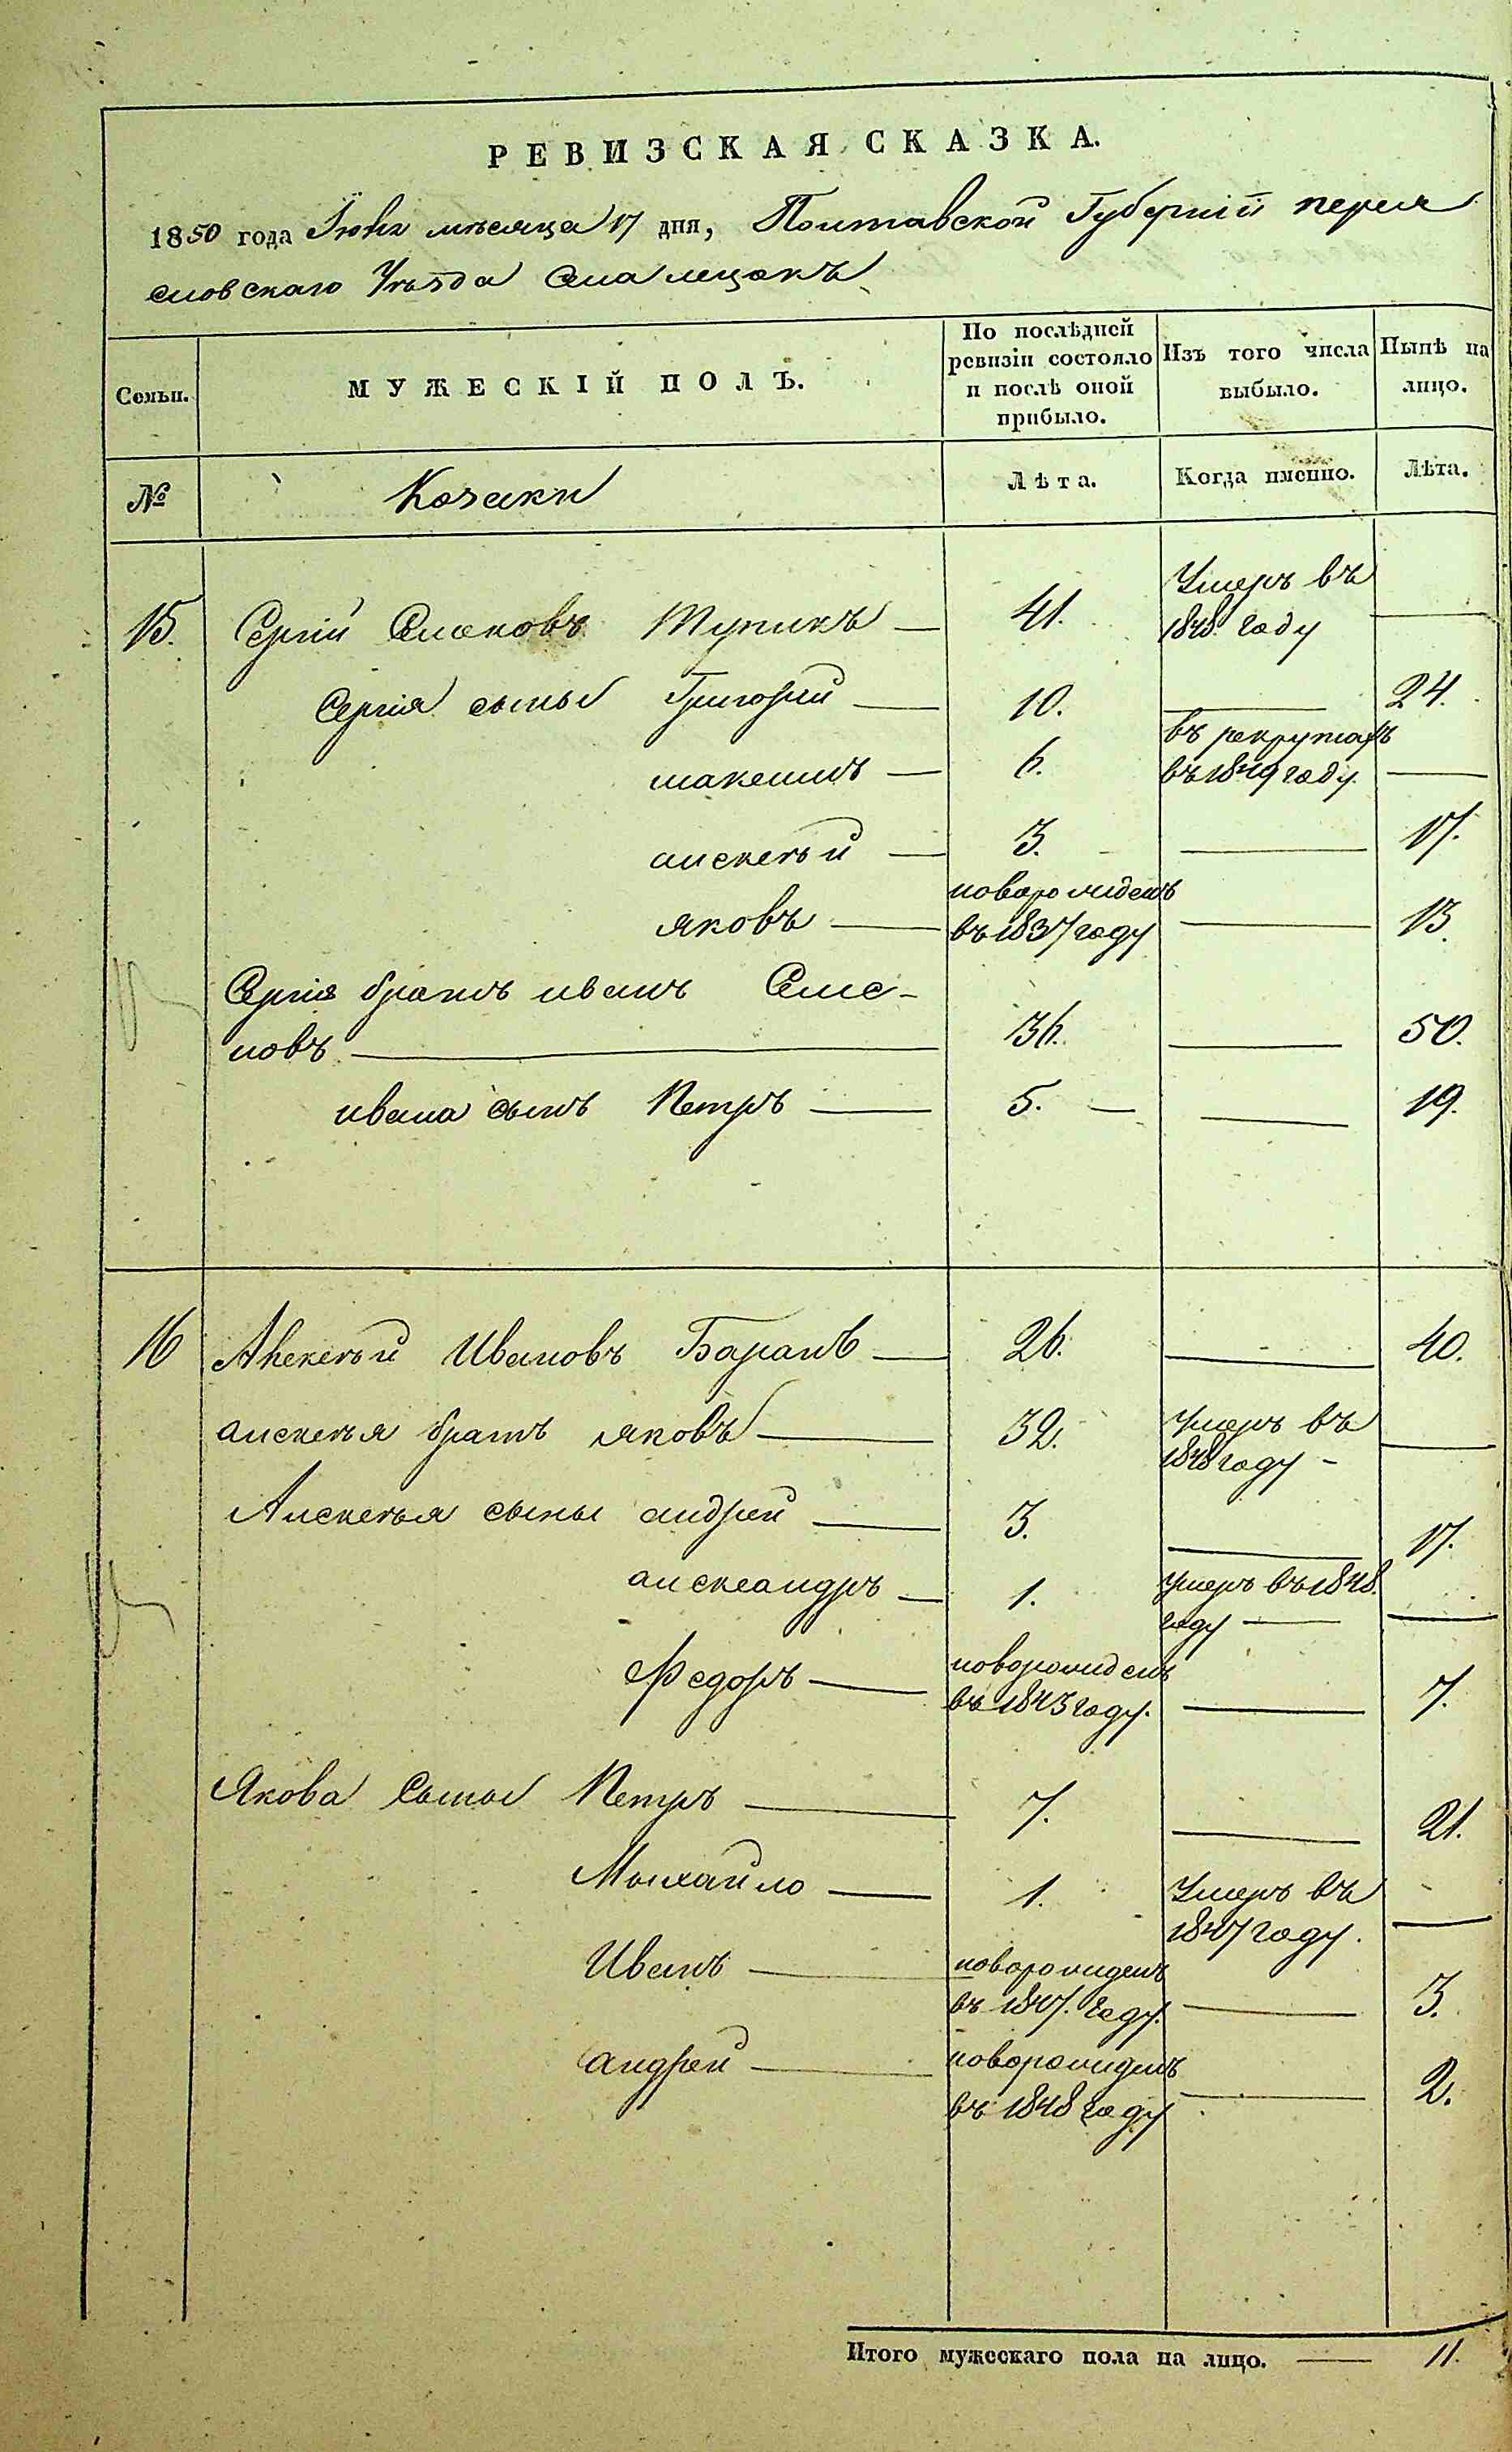 РЕВИЗСКАЯ СКАЗКА.
1850 года Іюня мѣсяца 17 дня, Полтавской Губерніи перея
словскаго Уѣзда
Семьи.
МУЖЕСКІЙ ПОЛЪ.
По послѣдней ревизіи состояло и послѣ оной прибыло.
Изъ того числа выбыло.
Нынѣ на лицо.
№
Козаки
Лѣта.
Когда именно.
Лѣта.
15. Сергій Семеновъ Тупикъ — 41. Умеръ въ 1848 году —
Сергія сыны Григорій — 10. — 24.
максимъ — 6. въ рекрутахъ въ 1849 году. —
алексѣй — 3. — 17.
яковъ — новорожденъ въ 1837 году — 13.
Сергія братъ иванъ Семе-
новъ — 36. — 50.
ивана сынъ Петръ — 5. — — 19.
16 Алексѣй Ивановъ Баранъ — 26. — 40.
алексѣя братъ яковъ — 32. умеръ въ 1848 году - —
Алексѣя сыны андрей — 3. — 17.
александръ — 1. умеръ въ 1848. году — —
Федоръ — новорожденъ въ 1843 году. — 7.
Якова Сыны Петръ — 7. — 21.
Михайло — 1. Умеръ въ 1847 году. —
Иванъ — новорожденъ въ 1847. году. — 3.
андрей — новорожденъ въ 1848 году — 2.
Итого мужескаго пола на лицо. — 11.